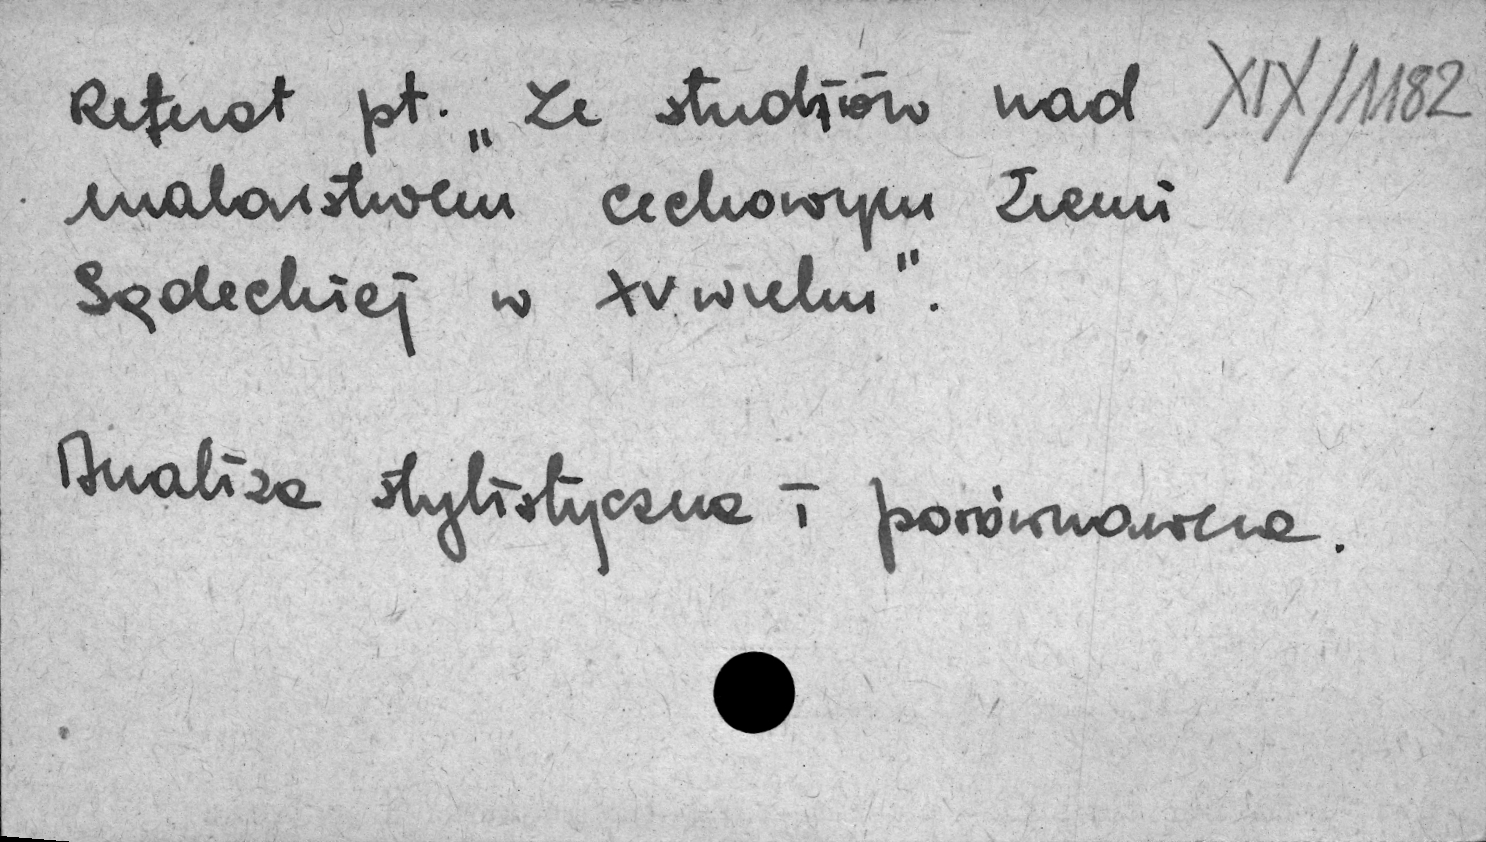 Referat pt. „Ze studiów nad XIX/1182
malarstwem cechowym Ziemi
Sądeckiej w XV wieku".
Analiza stylistyczna i porównawcza.